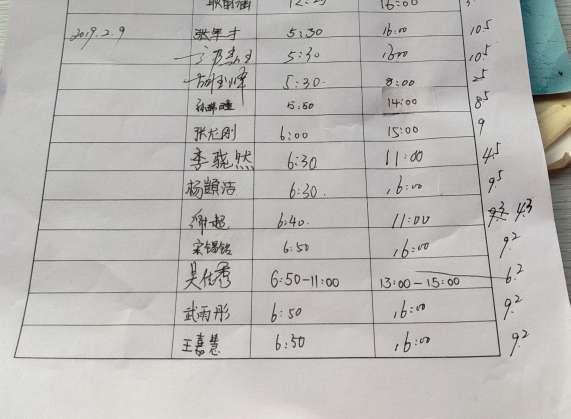 16:00
2019.2.9 张军才 5:30 16:00 10.5
5:30 16:00 10.5
5:30. 8:00 2.5
5:50 14:00 8.5
张龙刚 6:00 15:00 9
李骁然 6:30 11:00 4.5
杨顗浩 6:30. 16:00 9.5
谢超 6:40. 11:00 4.3
宋锡铭 6:50 16:00 9.2
吴仕秀 6:50-11:00 13:00-15:00 6.2
武雨彤 6:50 16:00 9.2
王嘉慧 6:50 16:00 9.2